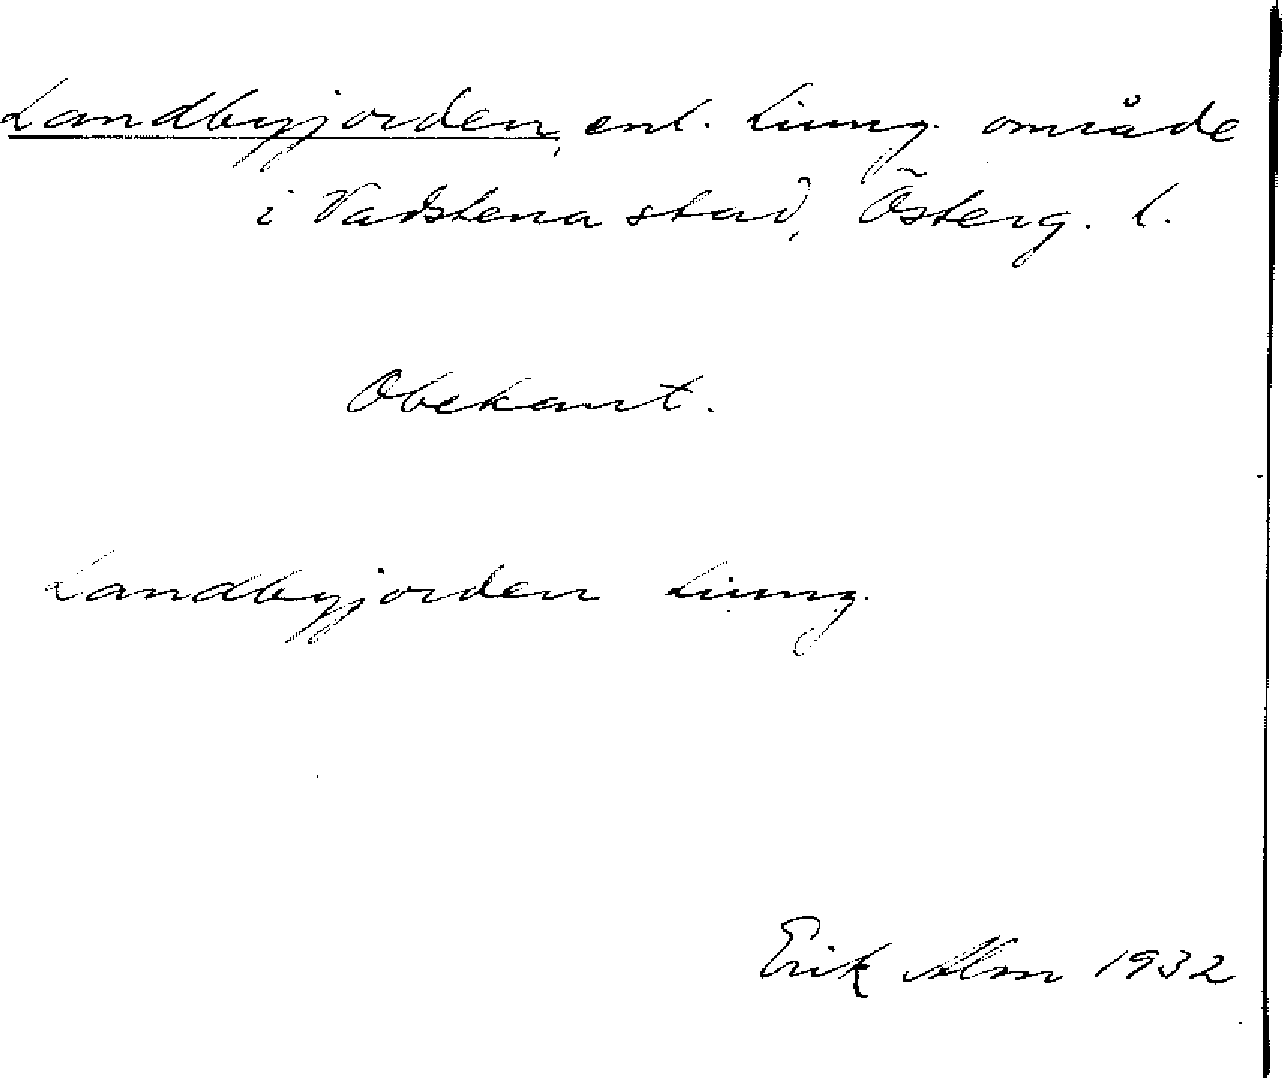 Landbyjorden, enl. Ljung. område
i Vadstena stad, Österg. l.
Obekant.
Landbyjorden Ljung.
Erik Alm 1932